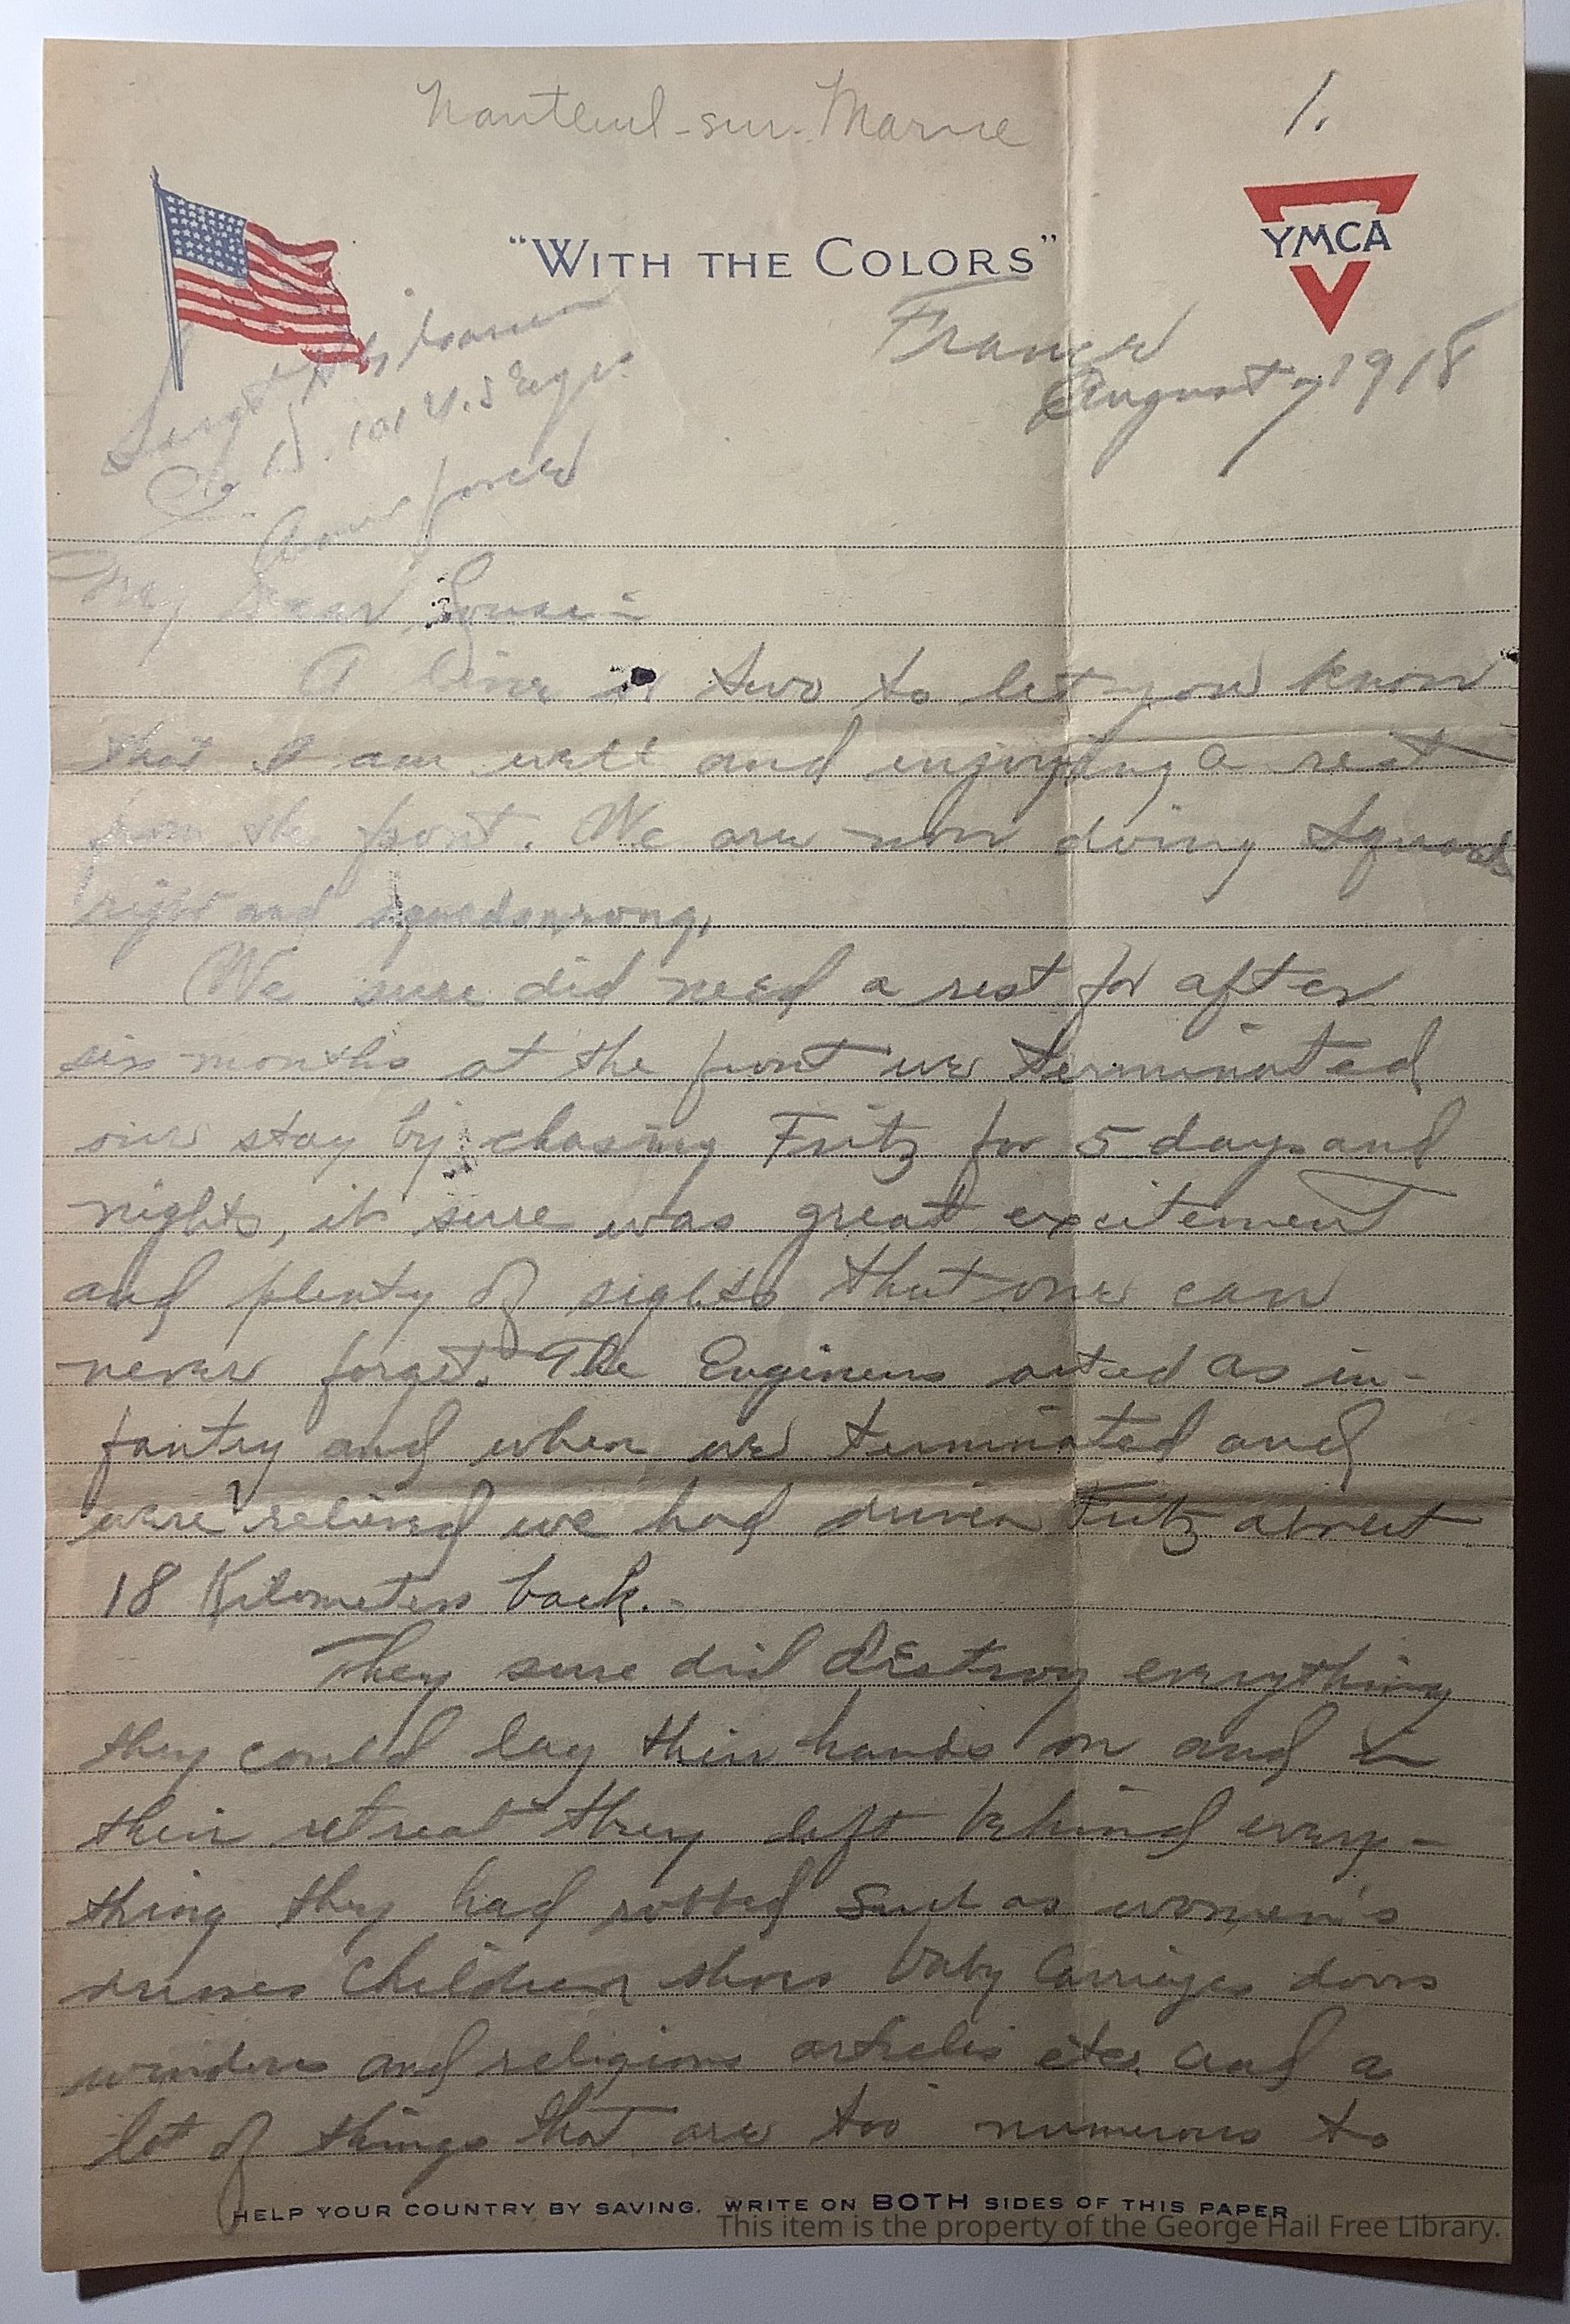 Nanteuil-sur-Marne
1.
"WITH THE COLORS"
YMCA
France
August 7 1918
Sergt
Co B. 101 U.S Engrs
Amer forces
My Dear Cousin
A line or two to let you know
that I am well and enjoying a rest
from the front. We are now doing squads
right and squadswrong.
We sure did need a rest for after
six months at the front we terminated
our stay by chasing Fritz for 5 days and
nights, it sure was great excitement
and plenty of sights that one can
never forget. The Engineers acted as in-
fantry and when we terminated and
were relived we had driven Fritz about
18 Kilometers back.-
They sure did destroy everything
they could lay their hands on and in
their retreat they left behind every-
thing they had robbed such as women's
dresses children shoes baby carriages doors
windows and religious articles etc. and a
lot of things that are too numerous to
HELP YOUR COUNTRY BY SAVING. WRITE ON BOTH SIDES OF THIS PAPER
This item is the property of the George Hail Free Library.